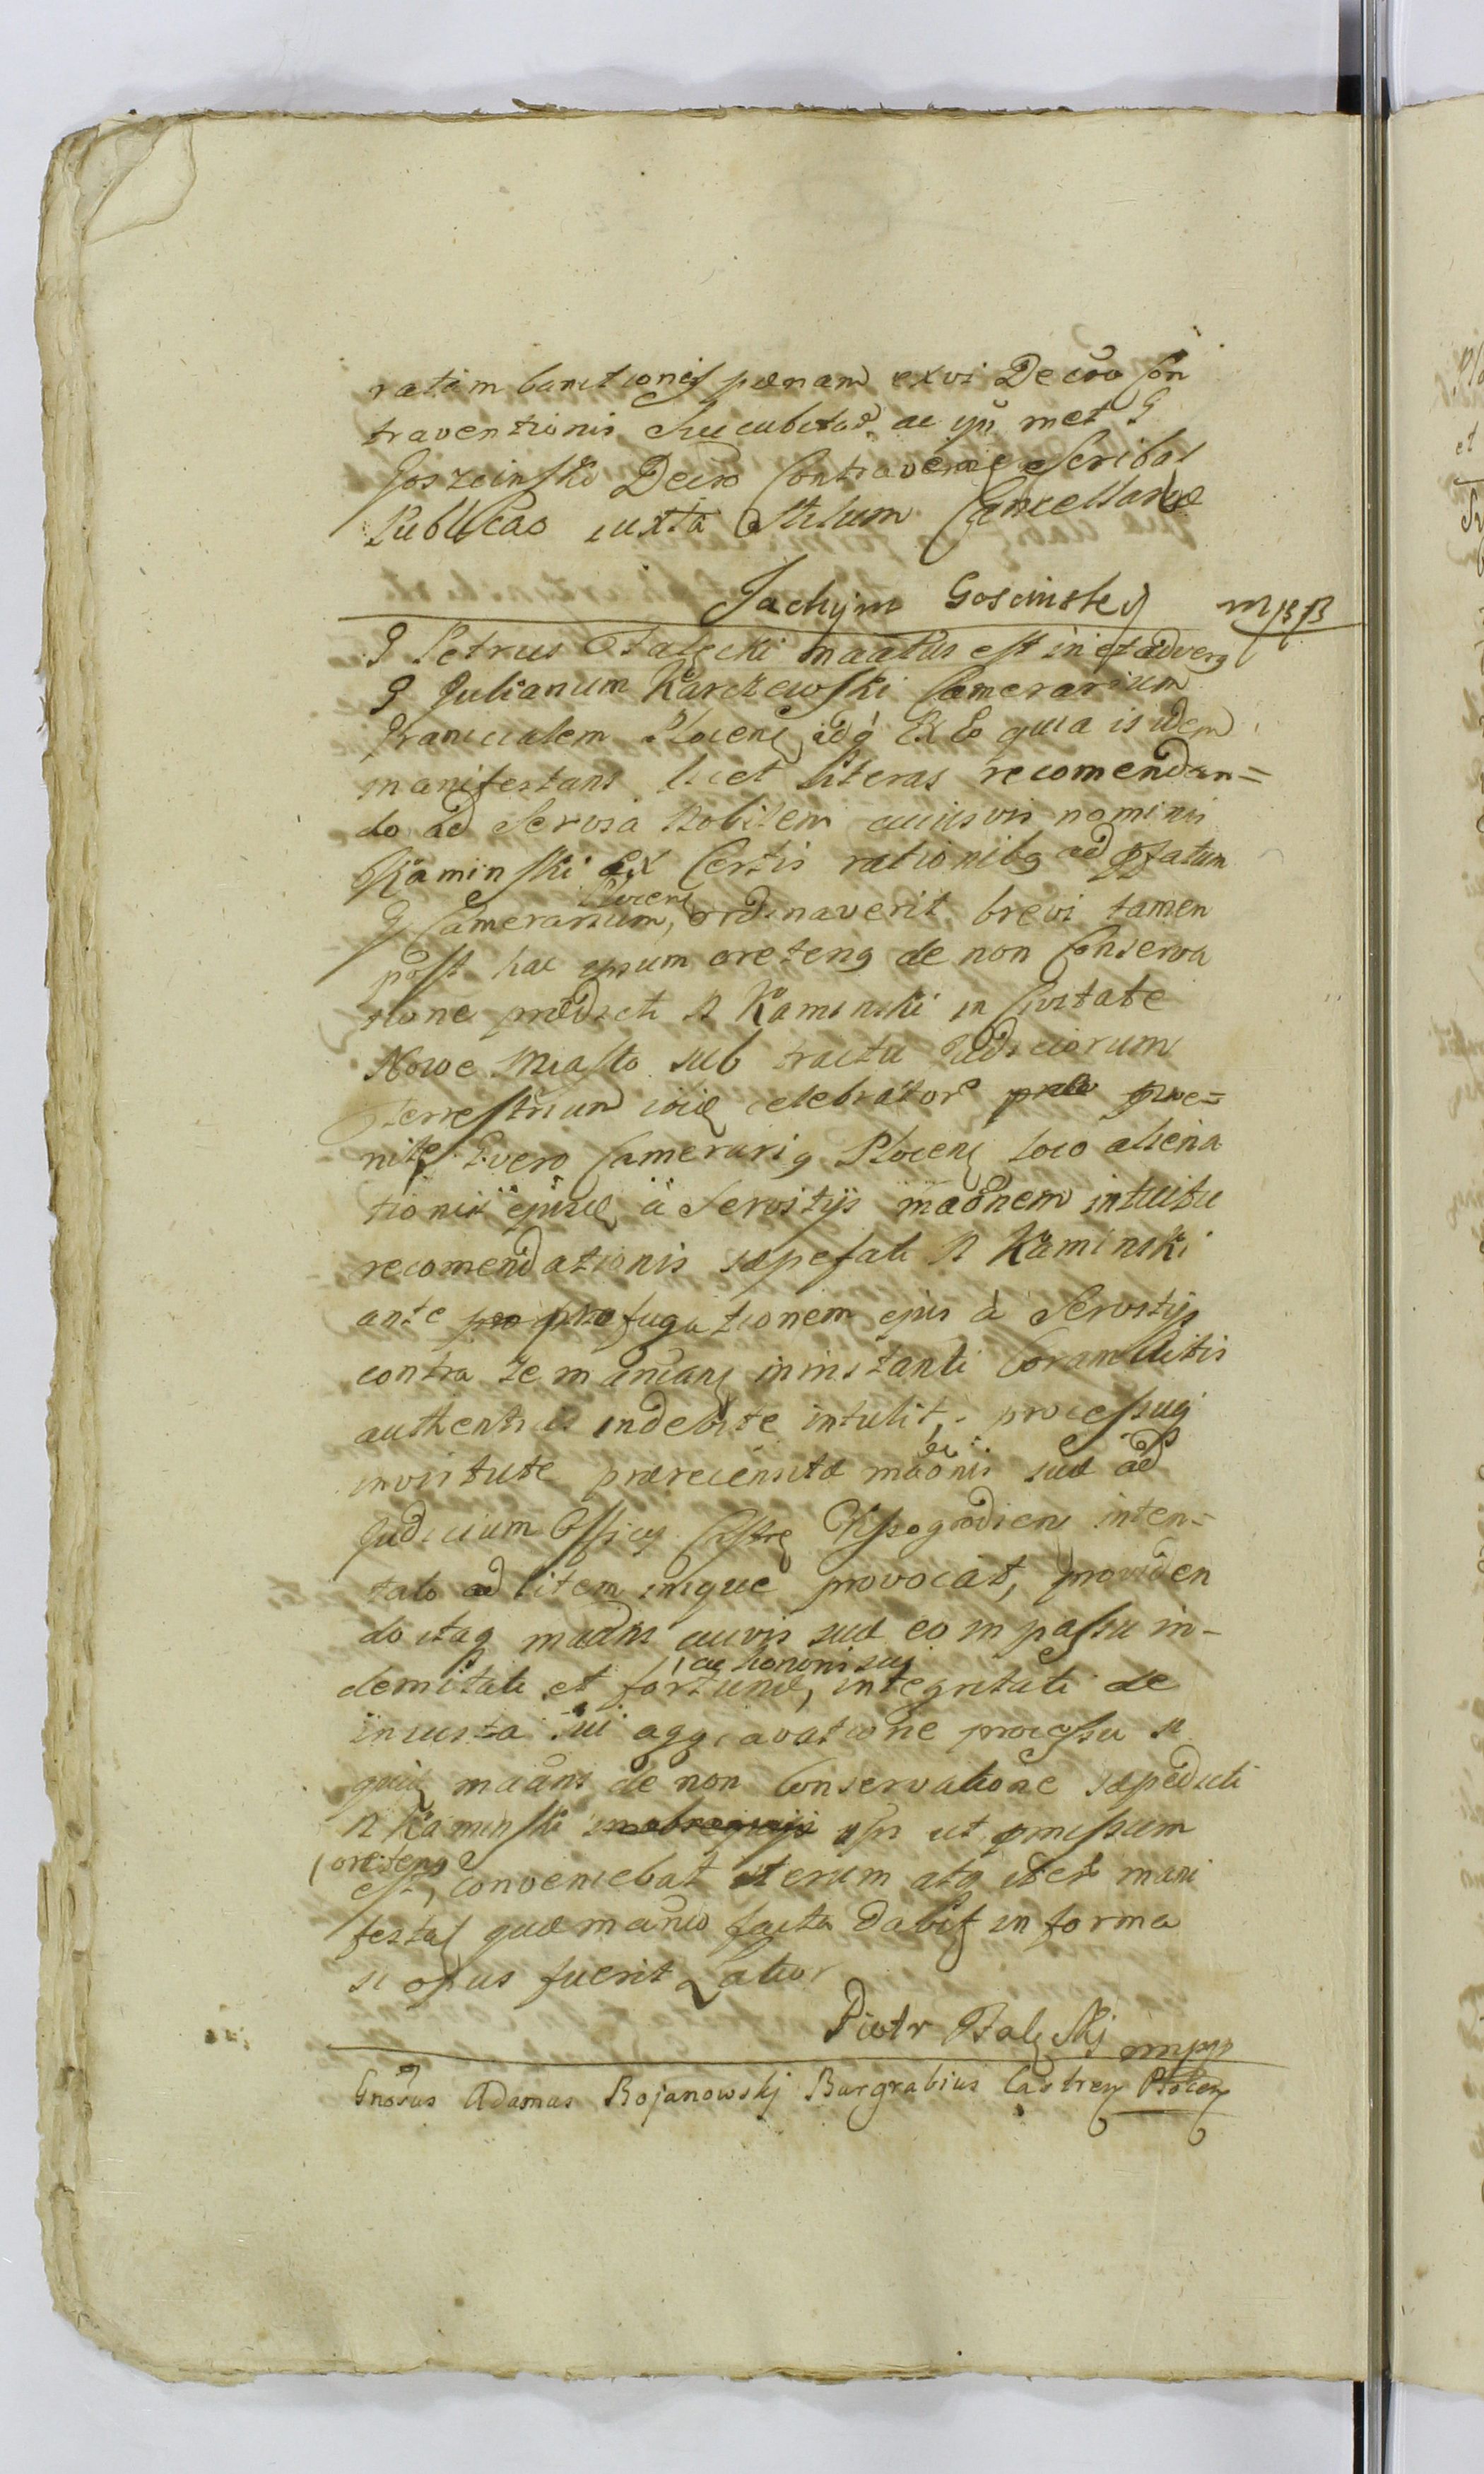 ratam banitionis pœnam ex vi Decro Con
traventionis succubitor, ac ipi met G
Goszcinski Decro Contravenie scribat
Publicas iuxta stilum Cancellariæ
Jachym Goscinskij mpp
G Petrus Falęcki maatus est in et advers
G Julianum Karczewski Camerarium
Granicialem Plocens idq Ex Eo quia is idem
manifestans licet literas recomendan=
do ad Servia Nobilem cuiusvis nominis
Kaminski ex Certis rationibg ad pfatum
G Camerarium, Plocens ordinaverit brevi tamen
post hac ipsum oreteng de non Conserva
tione prædicti N Kaminski in Civitate
Nowe Miasto sub tractu Judiciorum
Terrestrium ibid celebrator præ præe=
nite. G vero Camerarig Plocens loco aliena
tionis ejusd à Servitijs maõnem intuitu
recomendationis sæpefati N Kaminski
ante pro profugationem ejus à Servitijs
contra se manians in instanti Coram Actis
authenticis indebite intulit, processuq
in virtute prærecensitæ maõnis suæ ad
Judicium Officij Castrs Wyssogrodiens inten=
tato ad litem inique provocat, providen
do itaq madns cuivis suæ eo in passu in-
demnitati et fortunæ, ac honori sui integritati de
iniusta sui aggravatione processu si
quid maans de non Conservatione sæpedicti
N Kaminski ipsi ut pmissum
est, oreteng conveniebat iterum atq iter mani
festat quæ manio facta dabit in forma
si opus fuerit Latior
Piotr Falęskj mpp
Gnosus Adamus Bojanowskj Burgrabius Castren Plocen